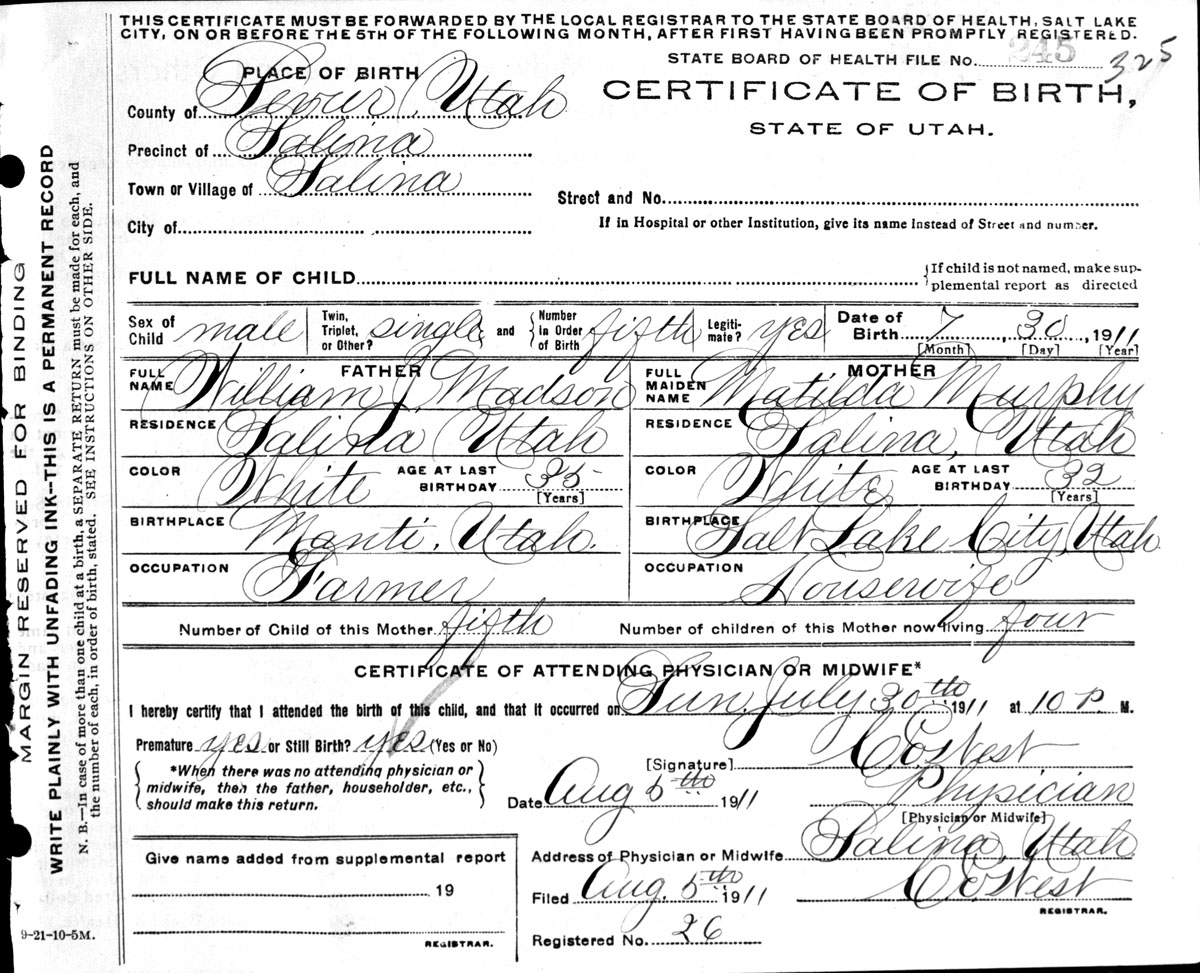 THIS CERTIFICATE MUST BE FORWARDED BY THE LOCAL REGISTRAR TO THE STATE BOARD OF HEALTH, SALT LAKE
CITY, ON OR BEFORE THE 5TH OF THE FOLLOWING MONTH, AFTER FIRST HAVING BEEN PROMPTLY REGISTERED.
STATE BOARD OF HEALTH FILE No. 245 325
PLACE OF BIRTH
CERTIFICATE OF BIRTH,
STATE OF UTAH.
County of Sevier, Utah
Precinct of Salina
Town or Village of Salina
Street and No.
City of
If in Hospital or other Institution, give its name Instead of Street and number.
FULL NAME OF CHILD
{If child is not named, make sup-
plemental report as directed
Sex of Child male Twin, Triplet, or Other? single and {Number in Order of Birth fifth Legiti- mate? yes Date of Birth 7, 30, 1911
[Month] [Day] [Year]
FATHER MOTHER
FULL NAME William J. Madson FULL MAIDEN NAME Matilda Murphy
RESIDENCE Salina Utah RESIDENCE Salina, Utah
COLOR White AGE AT LAST BIRTHDAY 35 [Years] COLOR White AGE AT LAST BIRTHDAY 32 [Years]
BIRTHPLACE Manti, Utah. BIRTHPLACE Salt Lake City, Utah
OCCUPATION Farmer OCCUPATION Housewife
Number of Child of this Mother fifth Number of children of this Mother now living four
CERTIFICATE OF ATTENDING PHYSICIAN OR MIDWIFE*
I hereby certify that I attended the birth of this child, and that it occurred on Sun. July 30th 1911 at 10 P. M.
Premature yes or Still Birth? yes (Yes or No)
[Signature] West
*When there was no attending physician or
midwife, then the father, householder, etc.,
should make this return.
Date Aug 5th 1911 Physician
[Physician or Midwife]
Address of Physician or Midwife Salina, Utah
Give name added from supplemental report
19
REGISTRAR.
Filed Aug. 5th 1911 West
REGISTRAR.
Registered No. 26
9-21-10-5M.
MARGIN RESERVED FOR BINDING
WRITE PLAINLY WITH UNFADING INK—THIS IS A PERMANENT RECORD
N. B.—In case of more than one child at a birth, a SEPARATE RETURN must be made for each, and
the number of each, in order of birth, stated. SEE INSTRUCTIONS ON OTHER SIDE.